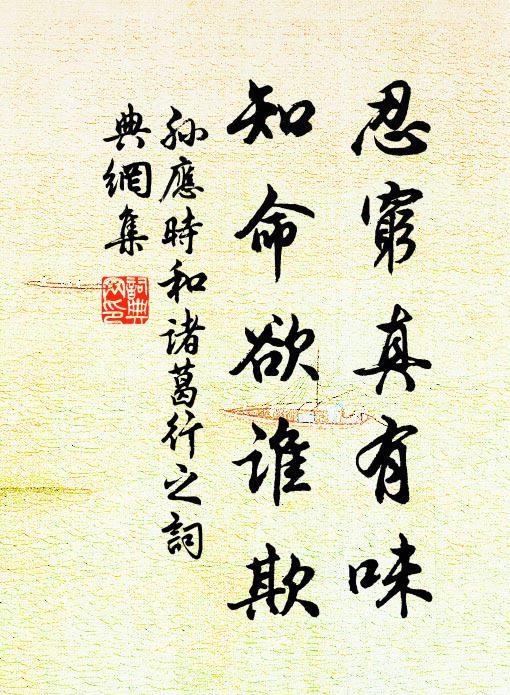 忍窮真有味
知命欲誰欺
孫應時和諸葛行之詞
典網集
詞典網印